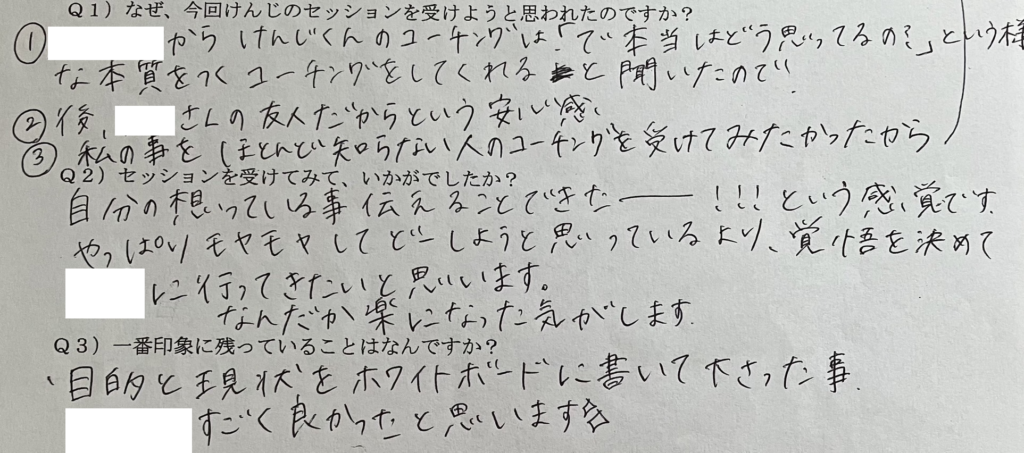 Q1）なぜ、今回けんじのセッションを受けようと思われたのですか？
① からけんじくんのコーチングは「で本当はどう思ってるの？」という様
な本質をつくコーチングをしてくれると聞いたので
② 後、 さんの友人だからという安心感、
③ 私の事をほとんど知らない人のコーチングを受けてみたかったから
Q2）セッションを受けてみて、いかがでしたか？
自分の想っている事伝えることできたー！！！という感覚です。
やっぱりモヤモヤしてどーしようと思っているより、覚悟を決めて
に行ってきたいと思います。
なんだか楽になった気がします
Q3）一番印象に残っていることはなんですか？
、目的と現状をホワイトボードに書いて下さった事。
すごく良かったと思います